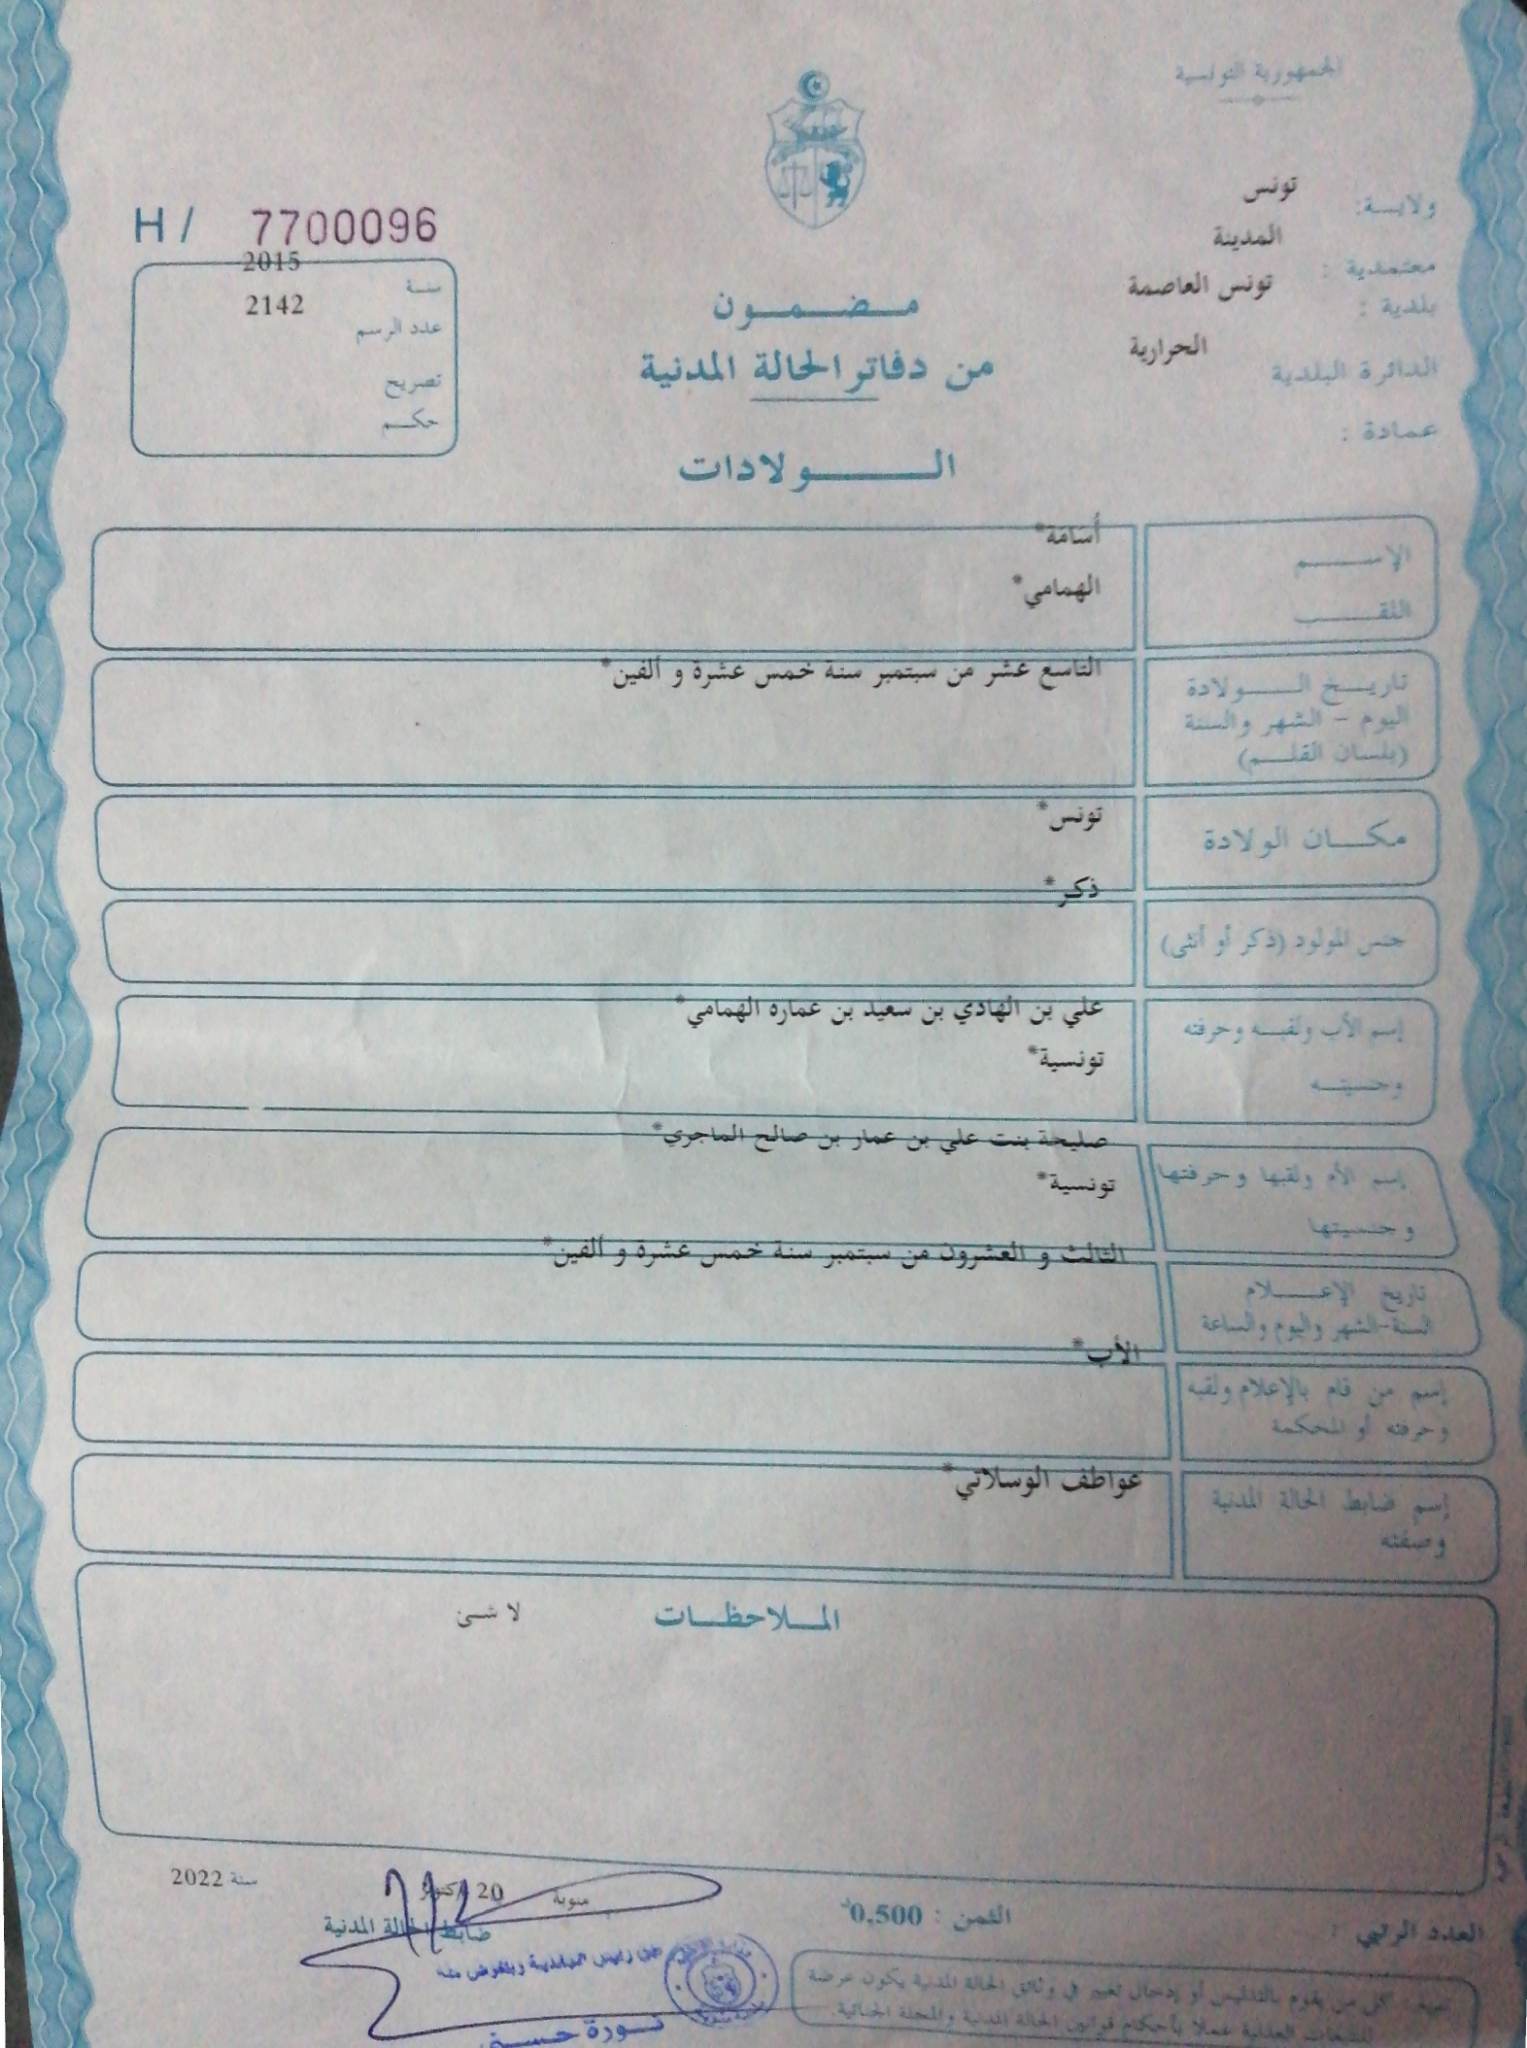 الجمهورية التونسية
ولايـــة: تونس
معتمدية : المدينة
بلدية : تونس العاصمة
الدائرة البلدية الحرارية
عمادة :
H / 7700096
سنة 2015
عدد الرسم 2142
تصريح
حكم
مضمون
من دفاتر الحالة المدنية
الولادات
الإسم أسَامَة*
اللقب الهمامي*
تاريخ الولادة التاسع عشر من سبتمبر سنة خمس عشرة و ألفين*
اليوم - الشهر والسنة
(بلسان القلم)
مكان الولادة تونس*
جنس المولود (ذكر أو أنثى) ذكر*
إسم الأب ولقبه وحرفته علي بن الهادي بن سعيد بن عماره الهمامي*
وجنسيته تونسية*
إسم الأم ولقبها وحرفتها صليحة بنت علي بن عمار بن صالح الماجري*
وجنسيتها تونسية*
تاريخ الإعلام الثالث و العشرون من سبتمبر سنة خمس عشرة و ألفين*
السنة-الشهر واليوم والساعة
إسم من قام بالإعلام ولقبه الأب*
وحرفته أو المحكمة
إسم ضابط الحالة المدنية عواطف الوسلاتي*
وصفته
الملاحظات لا شئ
منوبة 20 أكتوبر سنة 2022
ضابط الحالة المدنية
العدد الرتبي :
الثمن : 0,500د
عن رئيس البلدية وبتفويض منه
نورة حسني
تنبيه: كل من يقوم بالتدليس أو إدخال تغيير في وثائق الحالة المدنية يكون عرضة
للتتبعات العدلية عملا بأحكام قوانين الحالة المدنية والمجلة الجنائية.